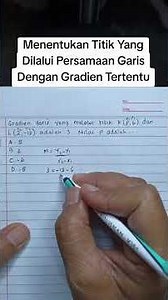 Menentukan Titik Yang
Dilalui Persamaan Garis
Dengan Gradien Tertentu
Gradien garis yang melalui titik K (P, 6) dan
L (2, -12) adalah 3. Nilai P adalah...
A. 8
B. 6 M = y₂ - y₁
C. -6 x₂ - x₁
D. -8 3 = -12 - 6